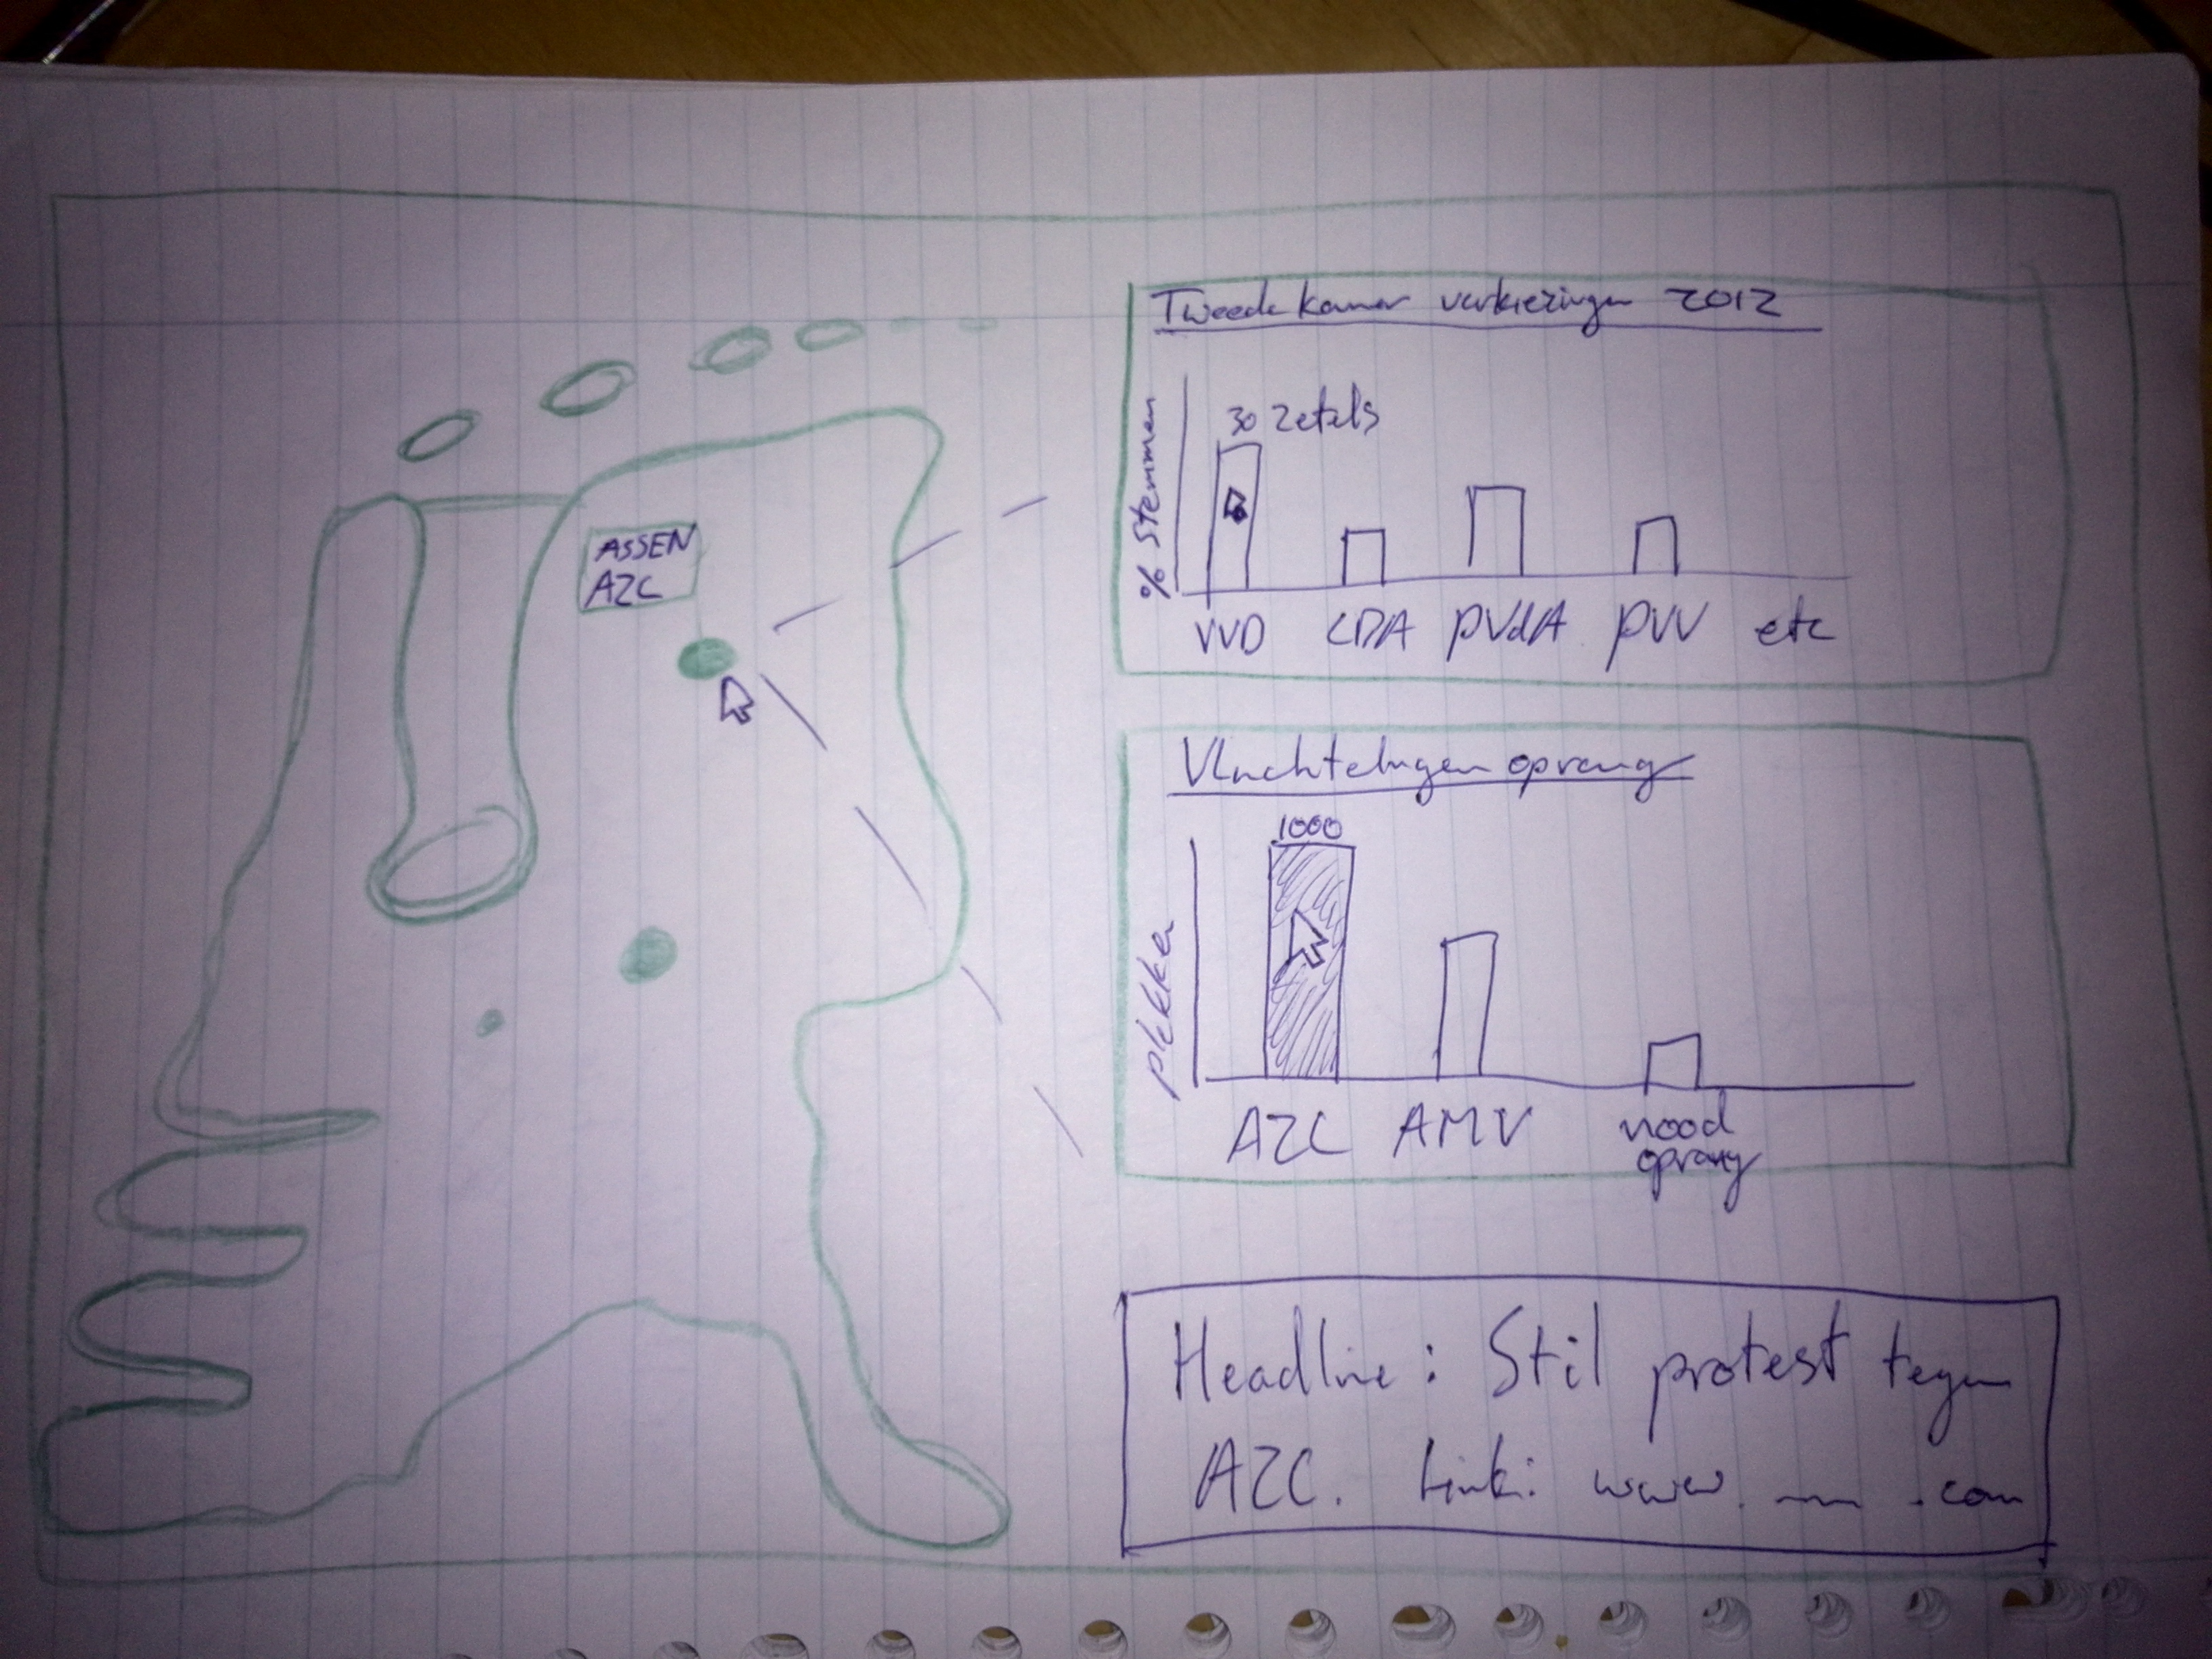 ASSEN
AZC
Tweede kamer verkiezingen 2012
% Stemmen
30 Zetels
VVD CDA PVdA PVV etc
Vluchtelingen opvang
plekken
1000
AZC AMV nood
opvang
Headline: Stil protest tegen
AZC. Link: www. .com